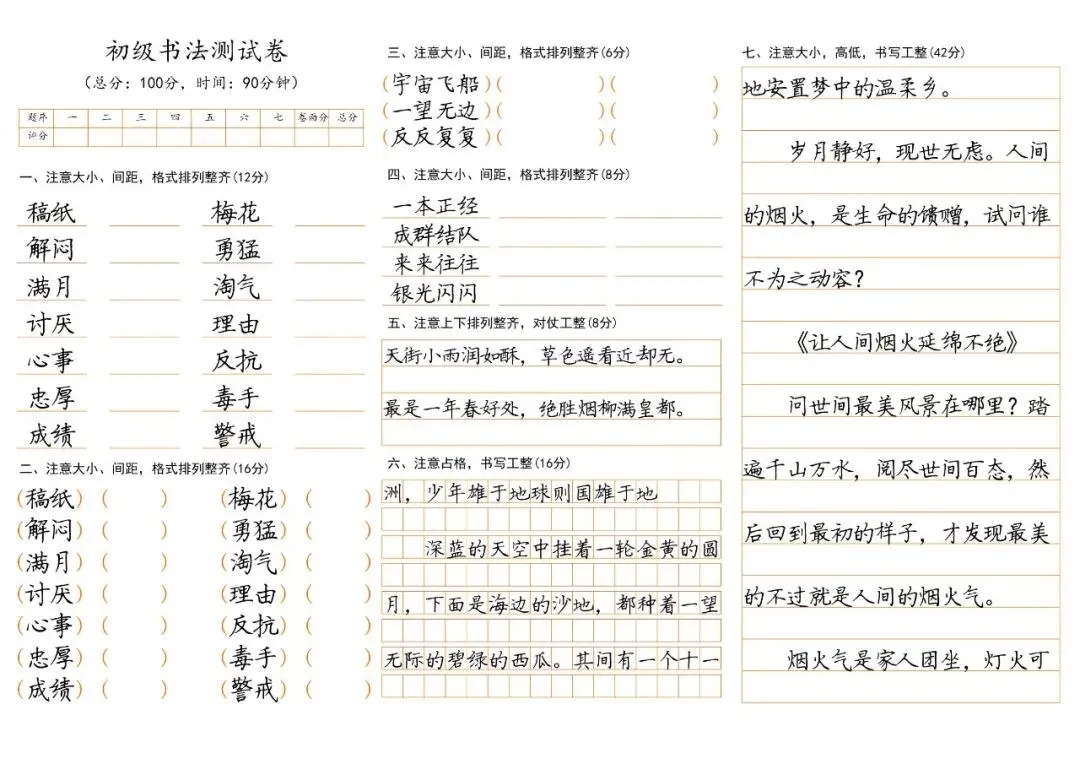 初级书法测试卷
(总分：100分，时间：90分钟)
题序 一 二 三 四 五 六 七 卷面分 总分
评分
一、注意大小、间距，格式排列整齐(12分)
稿纸 梅花
解闷 勇猛
满月 淘气
讨厌 理由
心事 反抗
忠厚 毒手
成绩 警戒
二、注意大小、间距，格式排列整齐(16分)
(稿纸) ( ) (梅花) ( )
(解闷) ( ) (勇猛) ( )
(满月) ( ) (淘气) ( )
(讨厌) ( ) (理由) ( )
(心事) ( ) (反抗) ( )
(忠厚) ( ) (毒手) ( )
(成绩) ( ) (警戒) ( )
三、注意大小、间距，格式排列整齐(6分)
(宇宙飞船) ( ) ( )
(一望无边) ( ) ( )
(反反复复) ( ) ( )
四、注意大小、间距，格式排列整齐(8分)
一本正经
成群结队
来来往往
银光闪闪
五、注意上下排列整齐，对仗工整(8分)
天街小雨润如酥，草色遥看近却无。
最是一年春好处，绝胜烟柳满皇都。
六、注意占格，书写工整(16分)
洲，少年雄于地球则国雄于地
深蓝的天空中挂着一轮金黄的圆
月，下面是海边的沙地，都种着一望
无际的碧绿的西瓜。其间有一个十一
七、注意大小，高低，书写工整(42分)
地安置梦中的温柔乡。
岁月静好，现世无虑。人间
的烟火，是生命的馈赠，试问谁
不为之动容？
《让人间烟火延绵不绝》
问世间最美风景在哪里？踏
遍千山万水，阅尽世间百态，然
后回到最初的样子，才发现最美
的不过就是人间的烟火气。
烟火气是家人团坐，灯火可